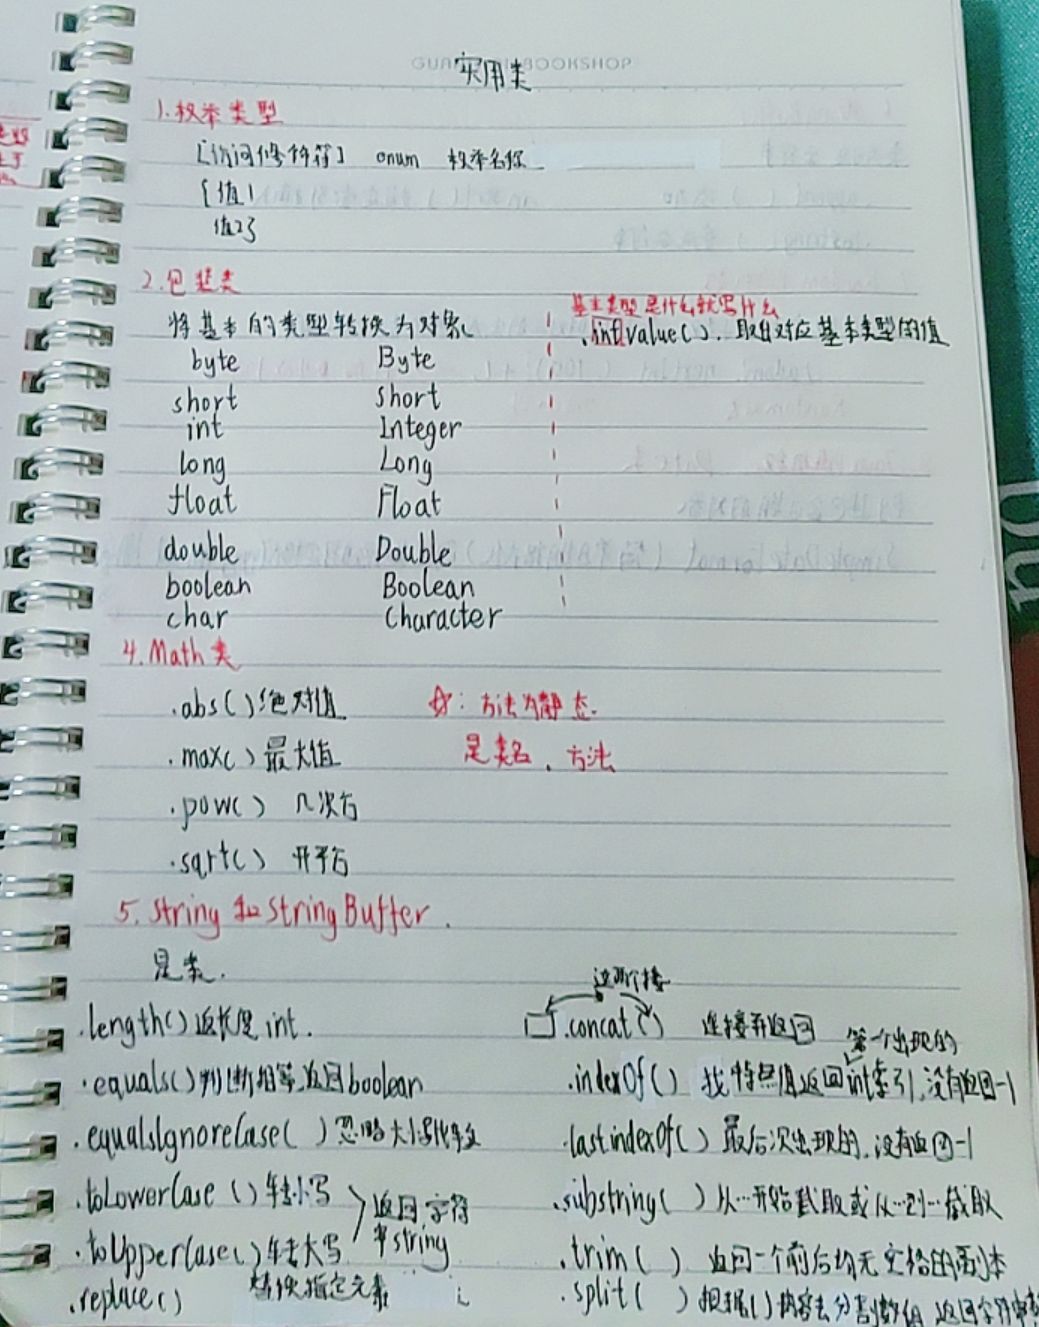 实用类
1.枚举类型
[访问修饰符] enum 枚举名称
{值1
值2}
2.包装类
将基本的类型转换为对象
byte Byte
short Short
int Integer
long Long
float Float
double Double
boolean Boolean
char Character
基本类型是什么就写什么
.intValue().取出对应基本类型的值
4.Math类
.abs()绝对值
.max()最大值
.pow() 几次方
.sqrt() 开平方
☆:方法为静态.
是类名.方法
5.String和StringBuffer.
是类.
.length()返长度int.
.equals()判断相等,返回boolean
.equalsIgnoreCase()忽略大小写
.toLowerCase()转小写
.toUpperCase()转大写
返回字符
串string
.replace() 替换指定元素
这两个接
.concat() 连接并返回
第一个出现的
.indexOf() 找特定值返回int索引,没有返回-1
.lastindexOf()最后次出现的,没有返回-1
.substring()从…开始截取或从…到…截取
.trim() 返回一个前后均无空格的副本
.split()根据()内容去分割数组,返回字符串